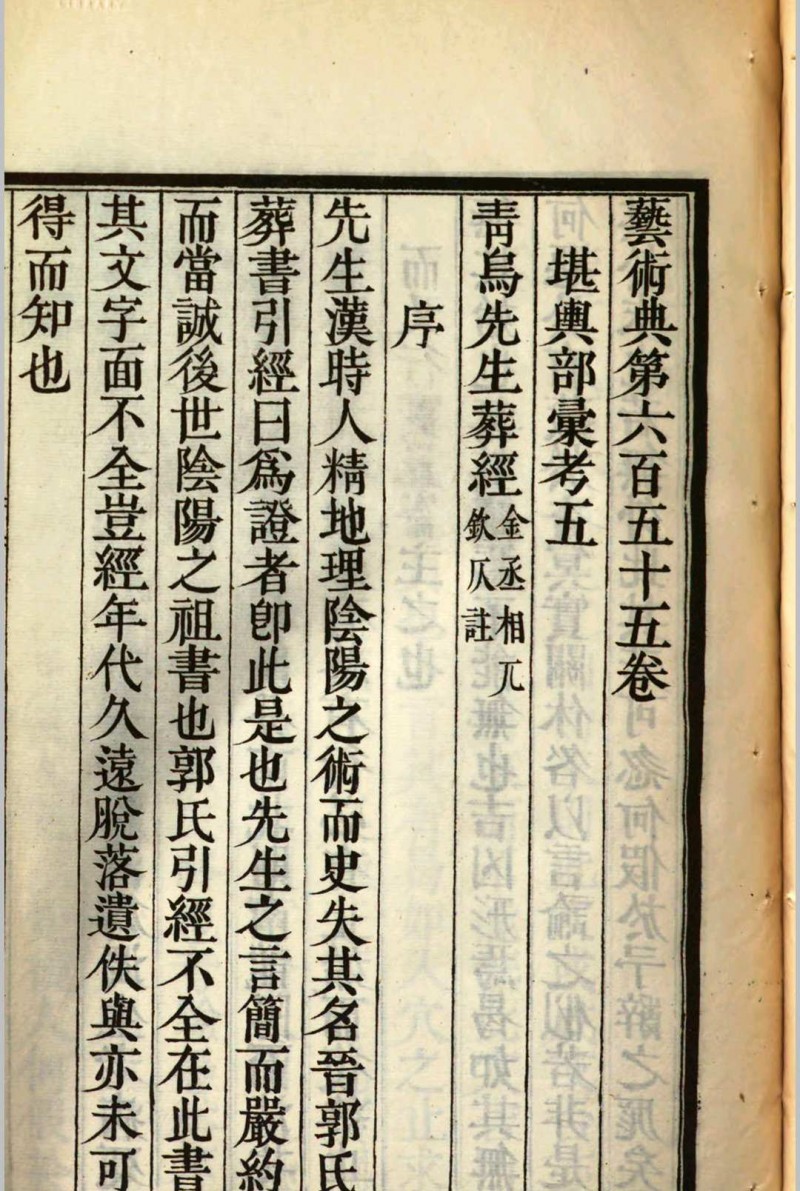 藝術典第六百五十五卷
堪輿部彙考五
靑烏先生葬經金丞相兀欽仄註
序
先生漢時人精地理陰陽之術而史失其名晉郭氏
葬書引經曰爲證者卽此是也先生之言簡而嚴約
而當誠後世陰陽之祖書也郭氏引經不全在此書
其文字面不全豈經年代久遠脫落遺佚與亦未可
得而知也